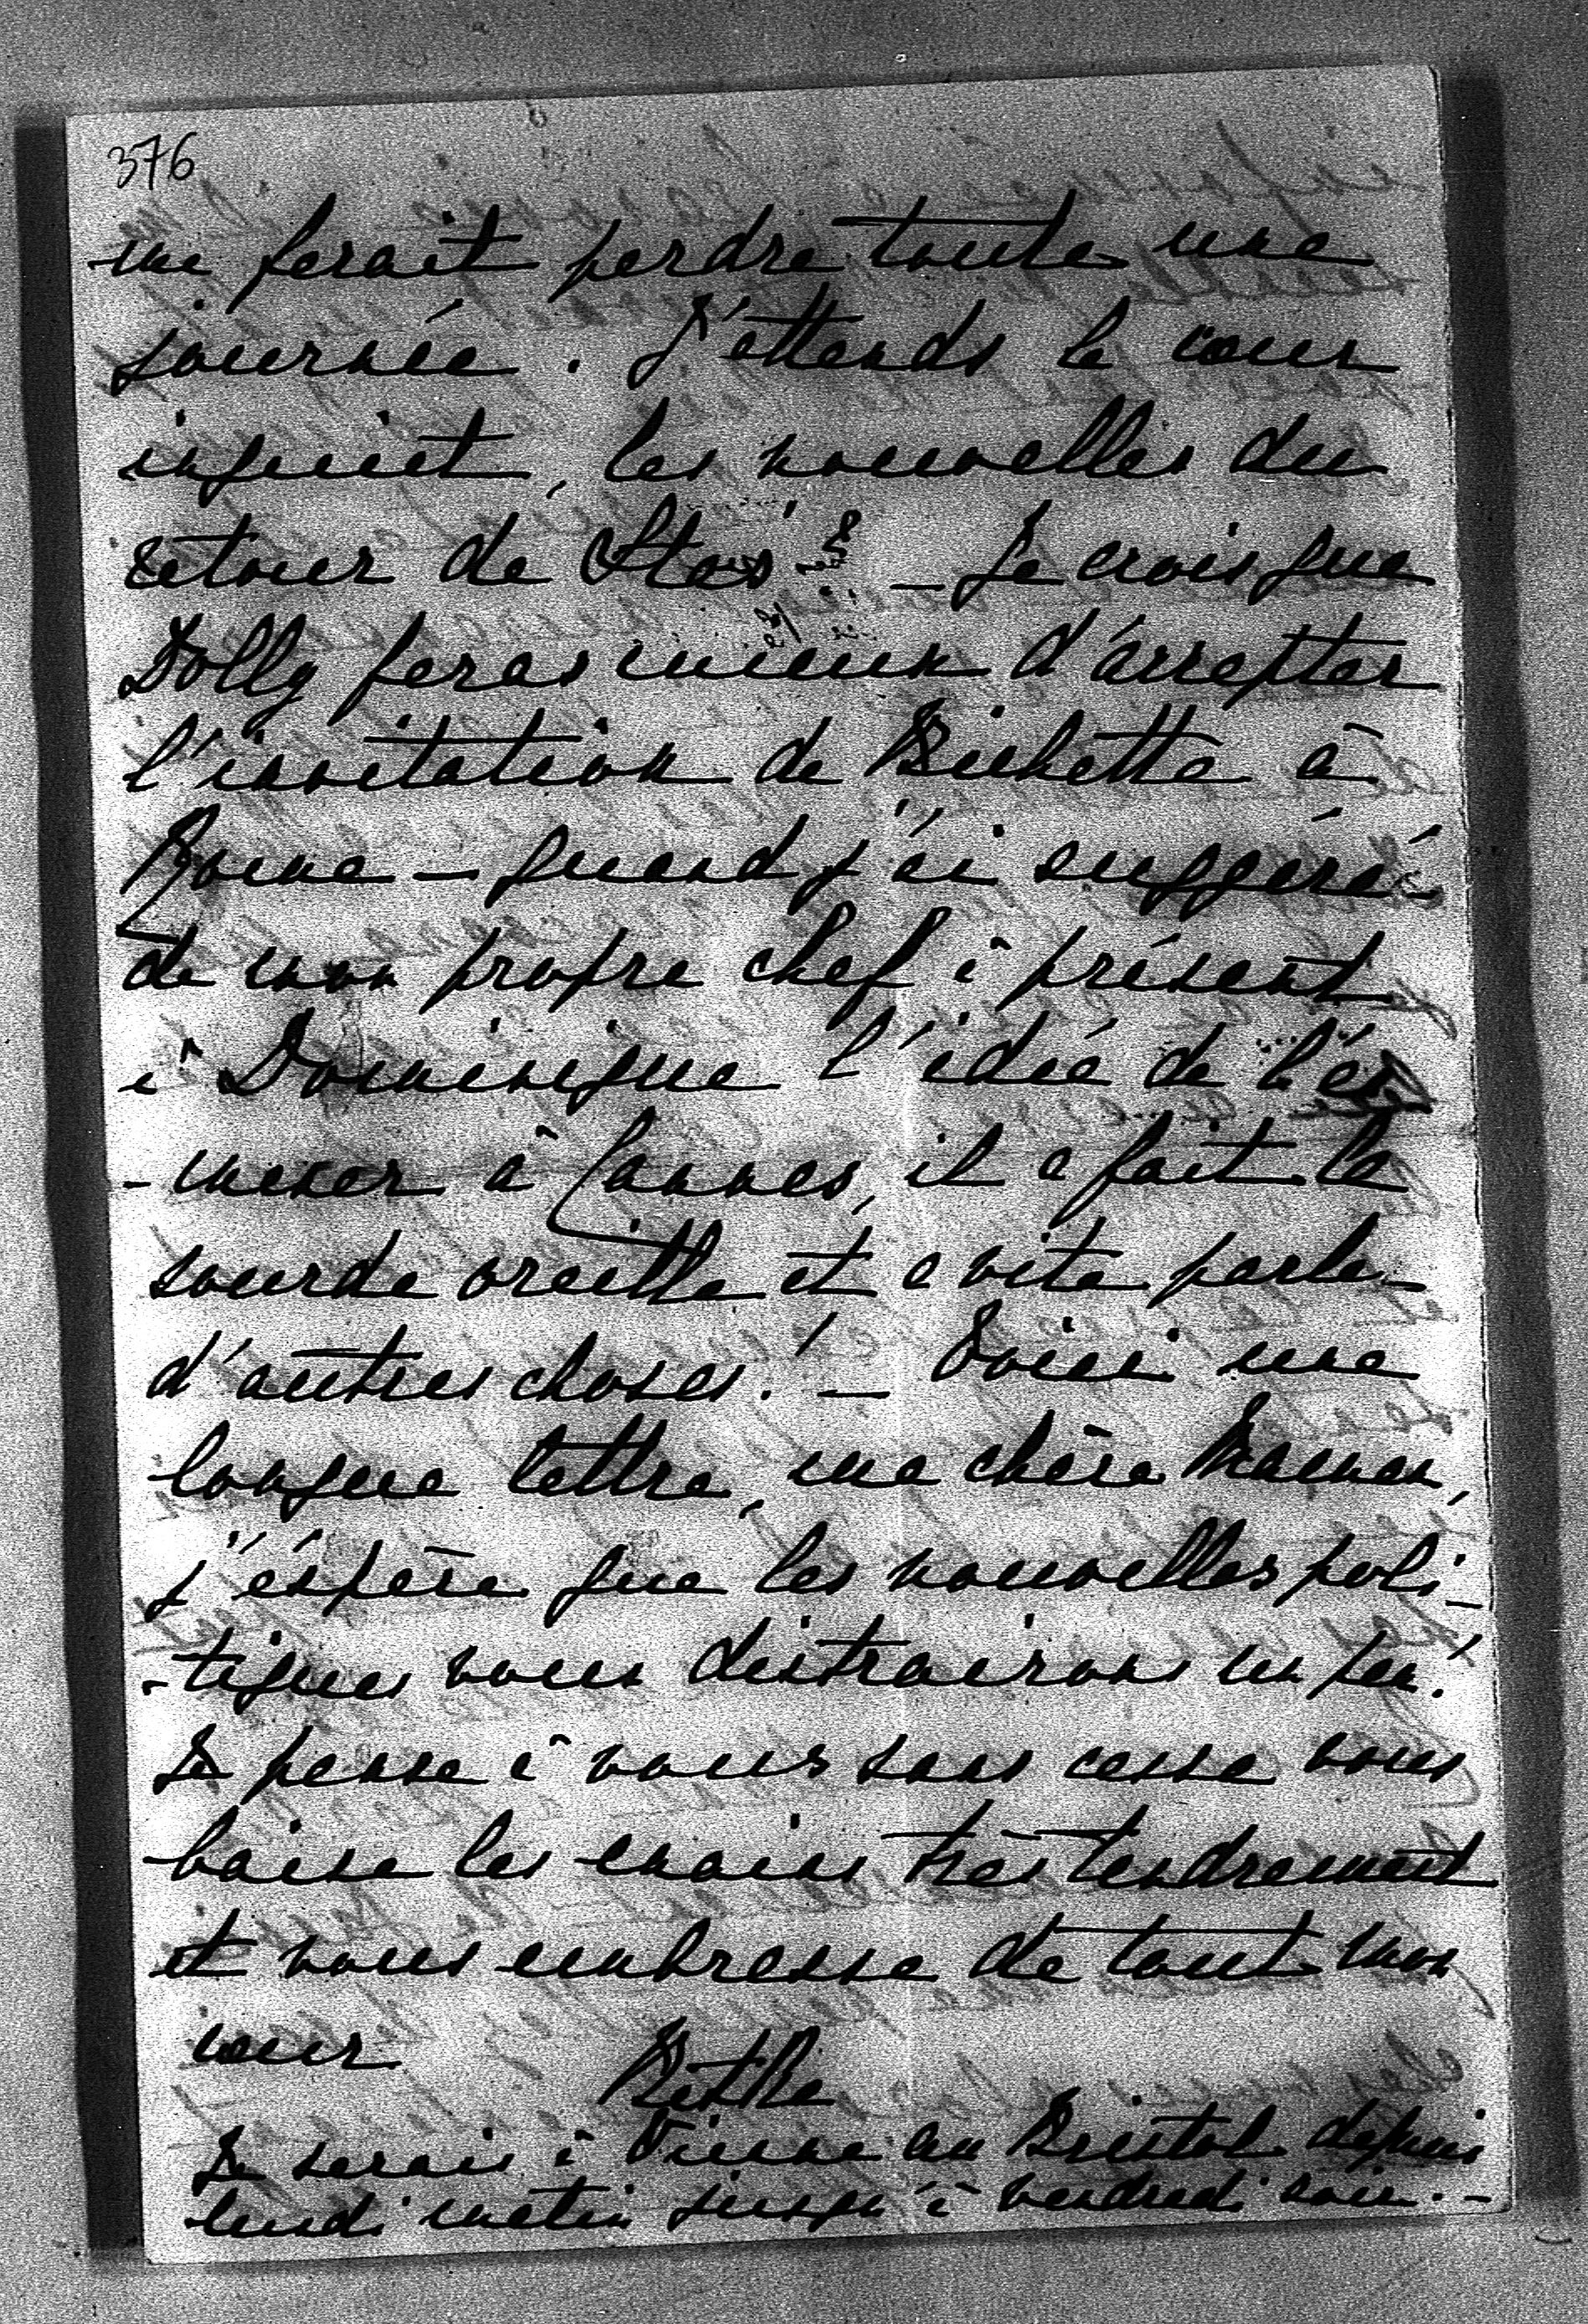 376
me ferait perdre toute une
journée. J'attends le coeur
inquiet, les nouvelles du
retour de Stas - Je crois que
Dolly feras mieux d'accepter
l'invitation de Bichette à
Rome - quand j'ai suggéré
de mon propre chef à présent
à Dominique l'idée de l'em
-mener à Cannes, il a fait la
sourde oreille et a vite parlé
d'autres choses! - Voici une
longue lettre, ma chère Maman,
j'éspère que les nouvelles poli-
-tiques vous distrairons un peu!
Je pense à vous sans cesse vous
baise les mains très tendrement
et vous embrasse de tout mon
coeur
Je serais à Vienne au Bristol depuis
lundi matin jusqu'à vendredi soir. -